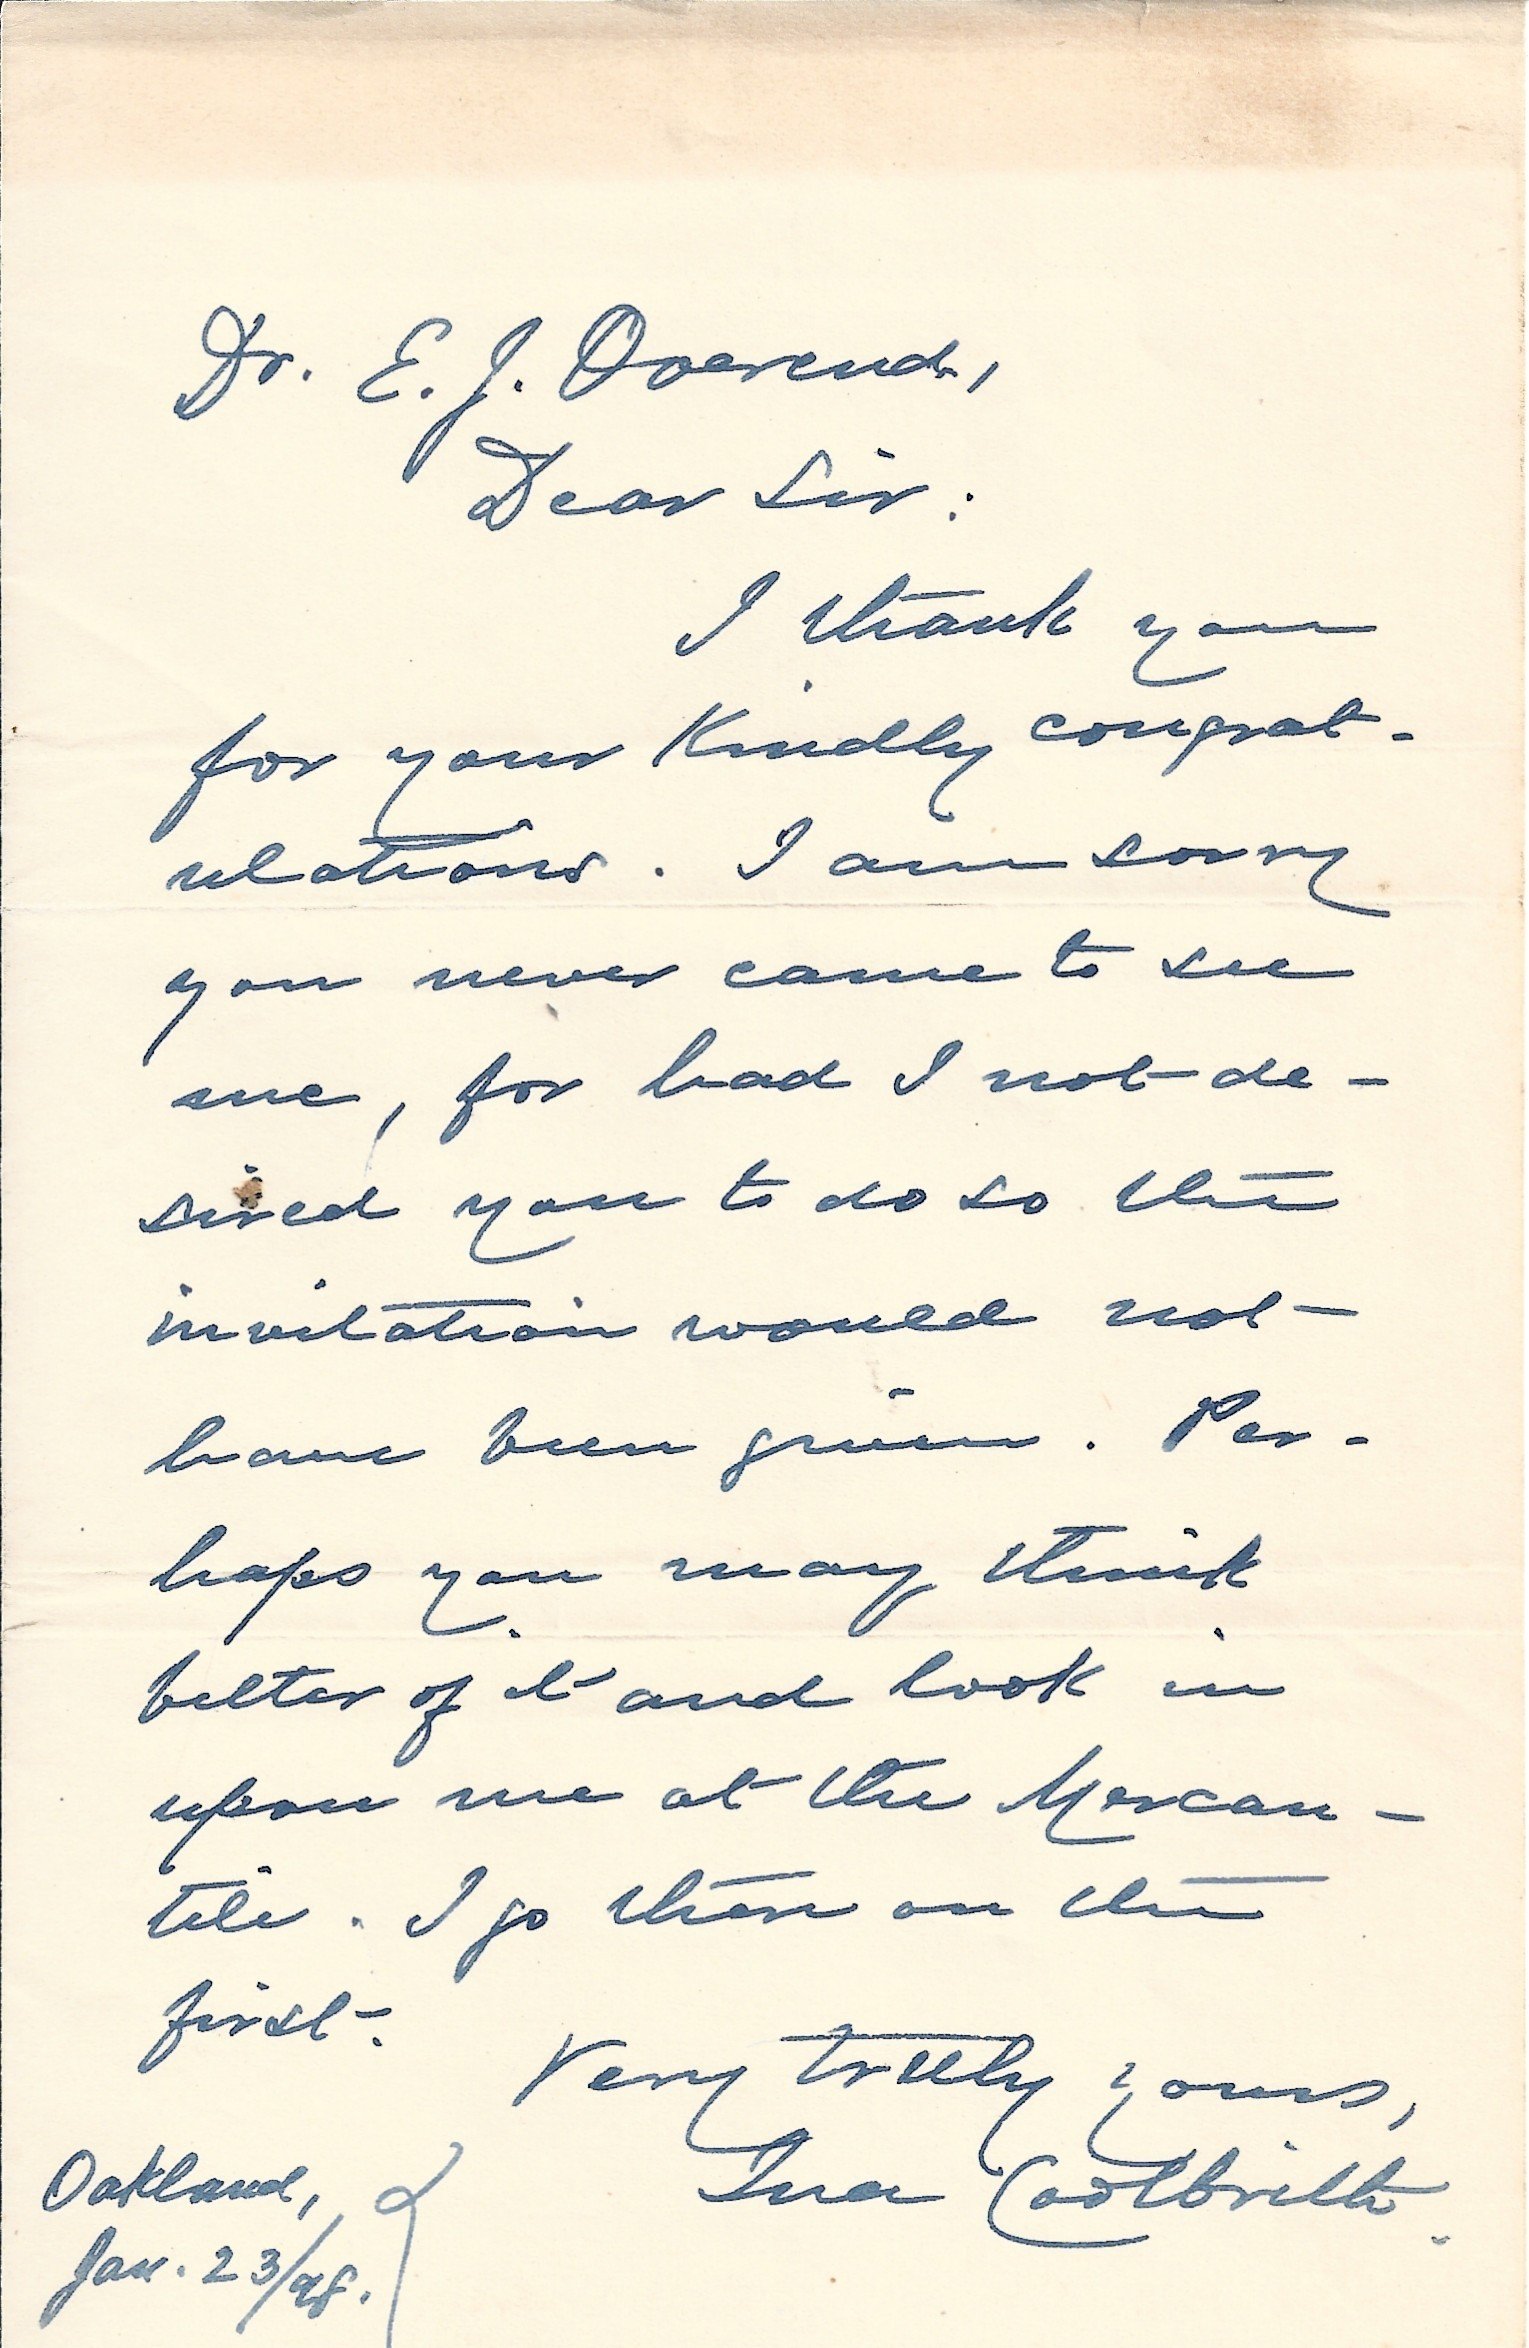 Dr. E. J. Overend,
Dear Sir:
I thank you
for your kindly congrat-
ulations. I am sorry
you never came to see
me, for had I not de-
sired you to do so the
invitation would not
have been given. Per-
haps you may think
better of it and look in
upon me at the Mercan-
tile. I go there on the
first.
Very truly yours,
Ina Coolbrith.
Oakland,
Jan. 23/98.